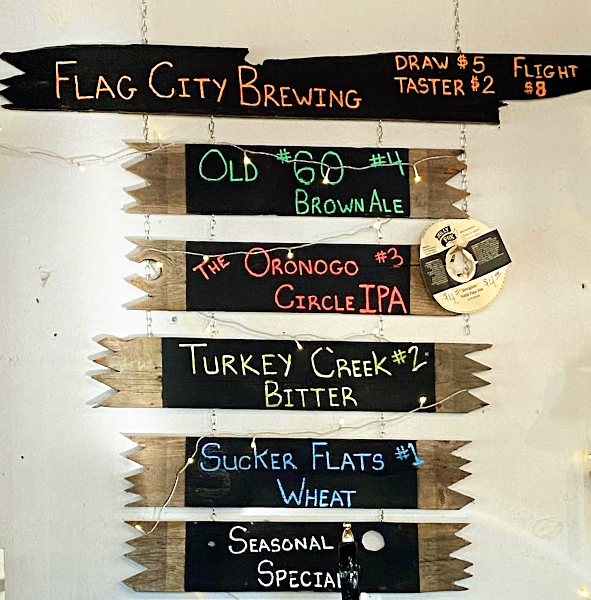 FLAG CITY BREWING
DRAW $5
TASTER $2
FLIGHT
$8
OLD #60 #4
BROWN ALE
THE ORONOGO #3
CIRCLE IPA
$4
$4
TURKEY CREEK #2
BITTER
SUCKER FLATS #1
WHEAT
SEASONAL
SPECIAL